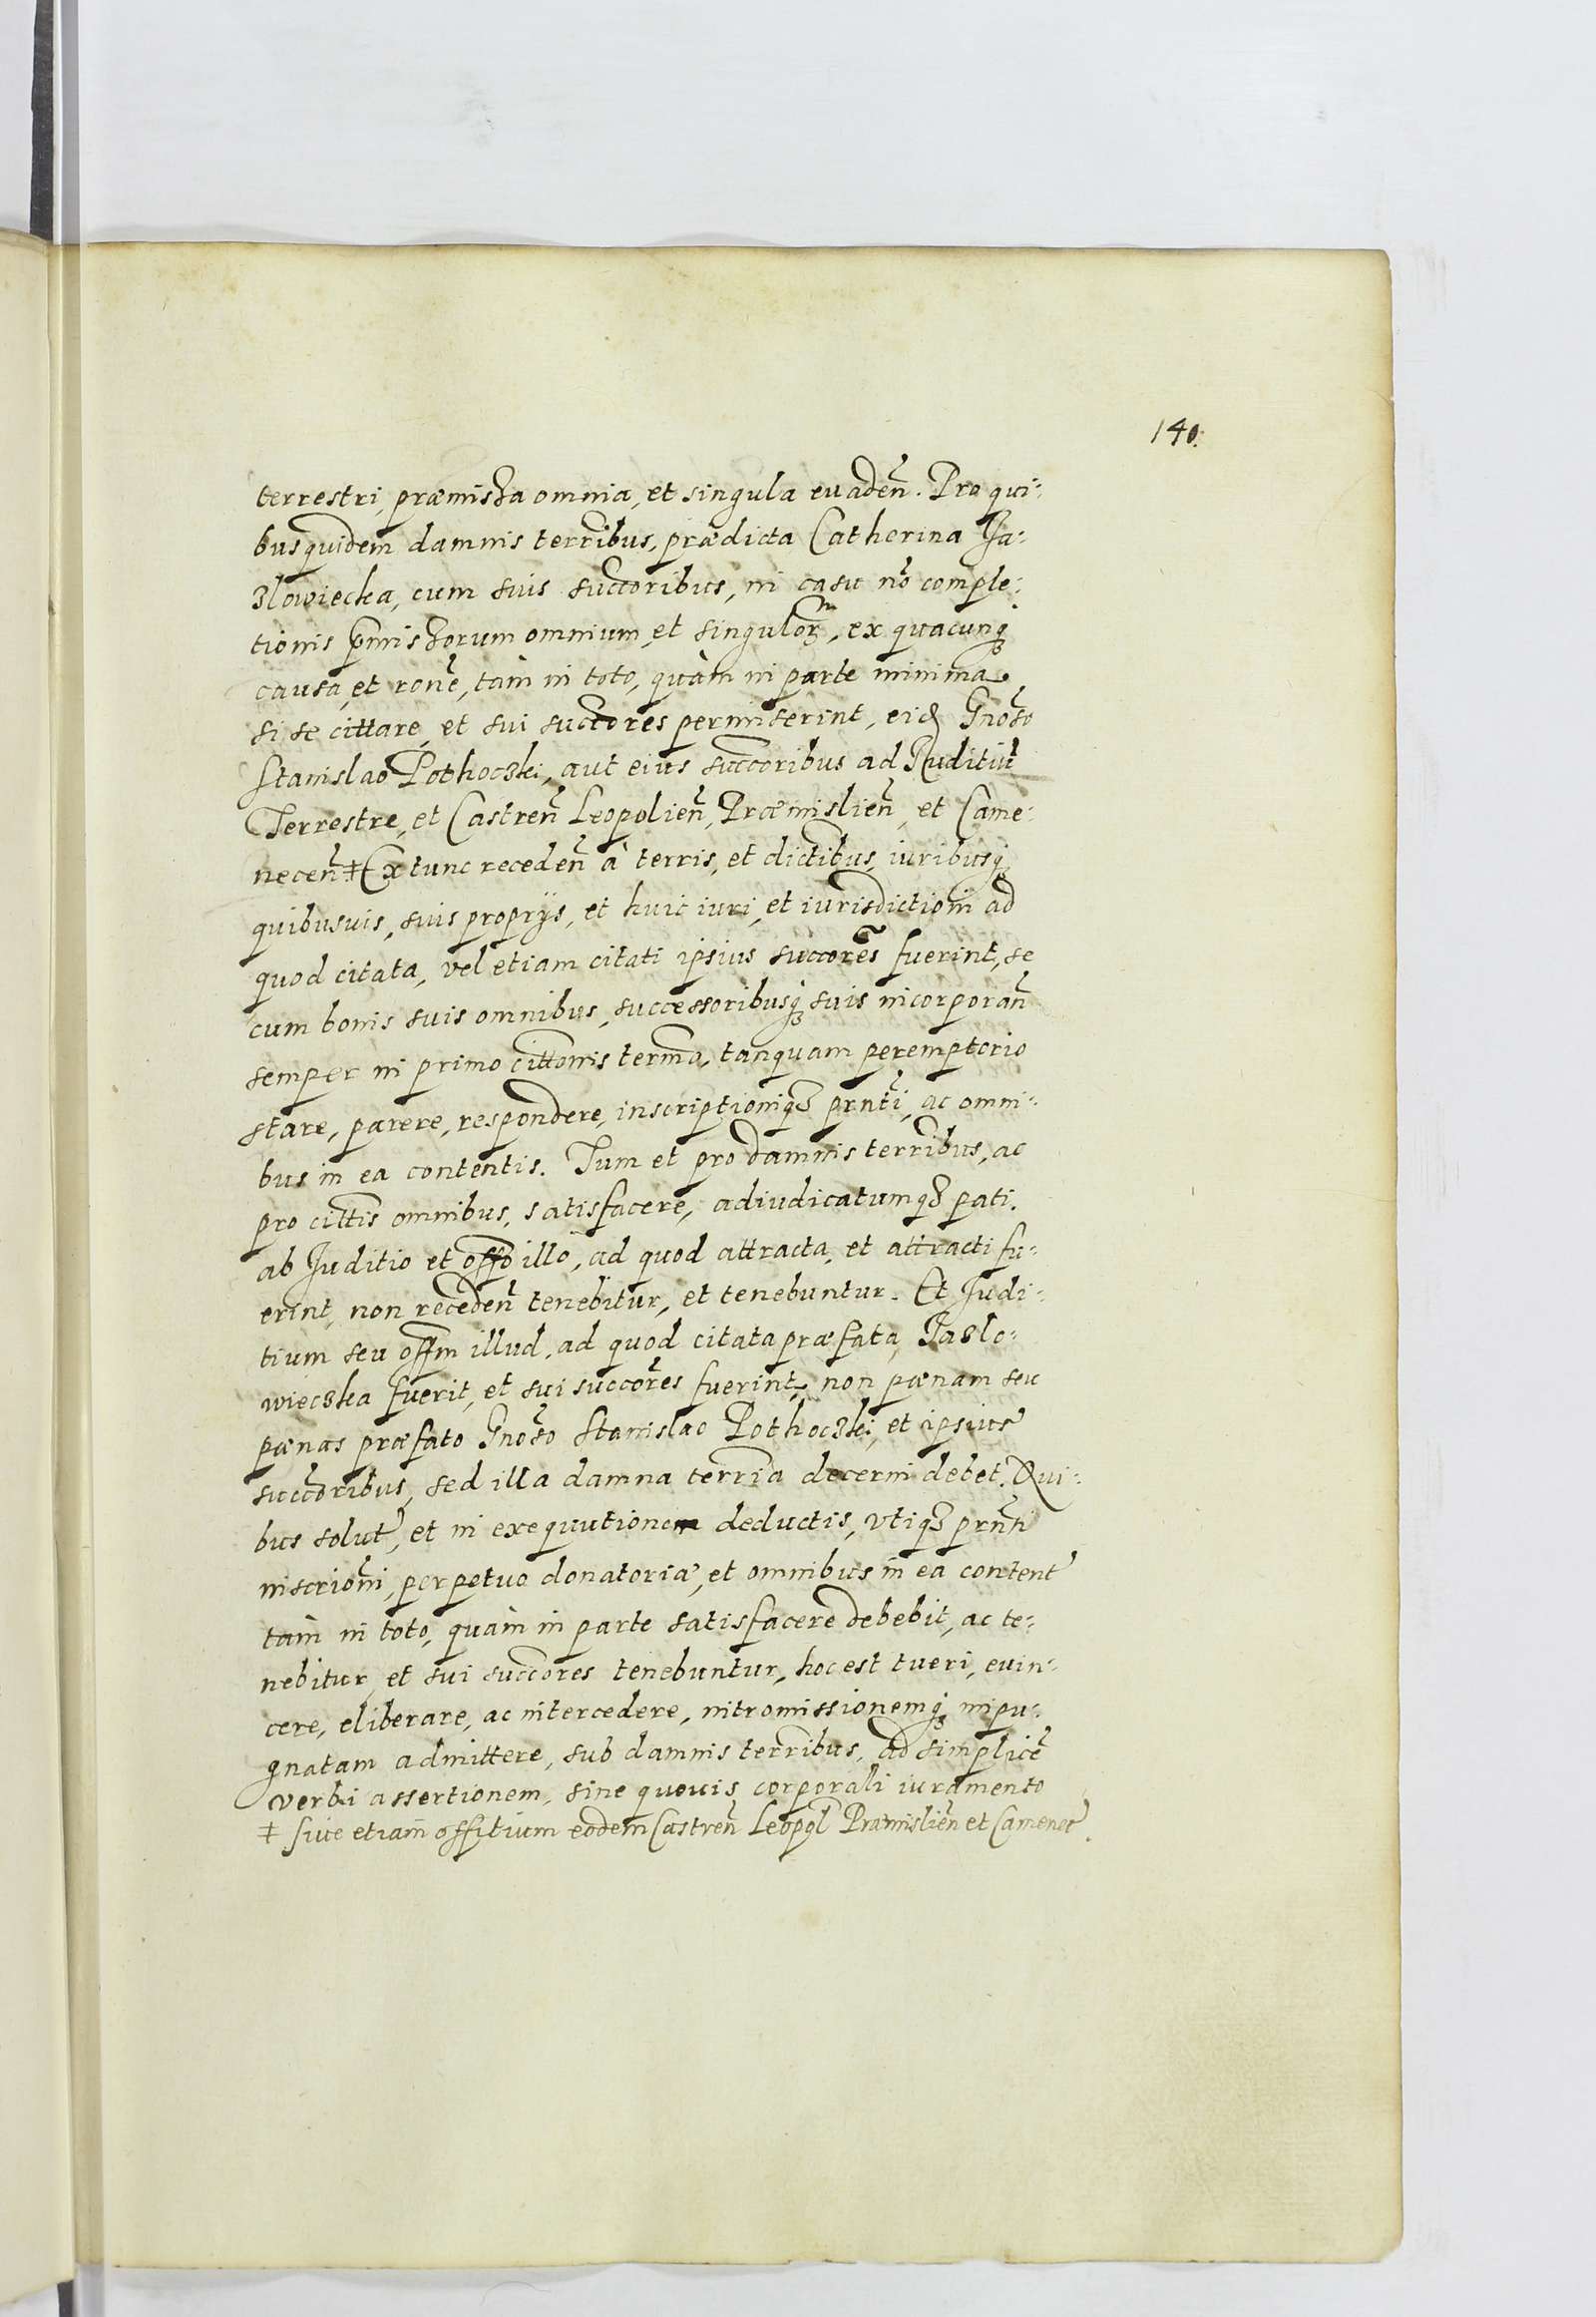 140.
terrestri, præmissa omnia, et singula evaden̄. Pro qui⸗
bus quidem damnis terribus, prædicta Catherina Ja⸗
zlowiecka, cum suis succoribus, in casu nō comple⸗
tionis p̄missorum omnium, et singulorm, ex quacunq
causa, et ronē, tàm in toto, quàm in parte minima
si se cittare, et sui succores permiserint, eid Gnoso
Stanislao Pothoczki, aut eius succoribus ad Juditiū
Terrestre, et Castren̄ Leopolien̄, Præmislien̄, et Came⸗
necen̄ ‡ Ex tunc receden̄ à terris, et dictibus, iuribusq
quibusuis, suis proprijs, et huic iuri, et iurisdictioni ad
quod citata, vel etiam citati ipsius succorēs fuerint, se
cum bonis suis omnibus, successoribusq suis incorporan̄
semper in primo cittonis termō, tanquam peremptorio
stare, parere, respondere, inscriptioniq prntī, ac omni⸗
bus in ea contentis. Tum et pro damnis terribus, ac
pro cittis omnibus, satisfacere, adiudicatumq pati.
ab Juditio et offo illo, ad quod attracta, et attracti fu⸗
erint, non receden̄ tenebitur, et tenebuntur. Et Judi⸗
tium seu offm illud, ad quod citata præfata, Jazlo⸗
wieczka fuerit, et sui succorēs fuerint, non pœnam seu
pœnas præfato Gnoso Stanislao Pothoczki, et ipsius
succoribus, sed illa damna terria decerni debet. Qui⸗
bus solut, et in exequutionem deductis, vtiq prntī
inscrioni, perpetuo donatoriæ, et omnibus in ea content
tàm in toto, quàm in parte satisfacere debebit, ac te⸗
nebitur, et sui succores tenebuntur, hoc est tueri, euin⸗
cere, eliberare, ac intercedere, intromissionemq inpu⸗
gnatam admittere, sub damnis terribus, ad simplicē
verbi assertionem, sine quouis corporali iuramento
‡ siue etiam offitium eodem Castren̄ Leopol Præmislien̄ et Camenec.